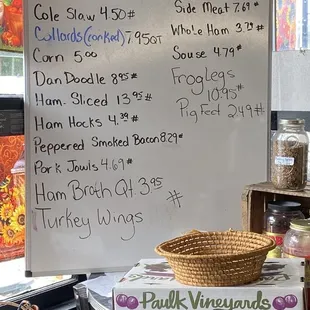 Cole Slaw 4.50#
Collards (cooked) 7.95QT
Corn 5.00
Dan Doodle 8.95#
Ham. Sliced 13.95#
Ham Hocks 4.39#
Peppered Smoked Bacon 8.29#
Pork Jowls 4.69#
Ham Broth Qt 3.95
Turkey Wings #
Side Meat 7.69#
Whole Ham 3.79#
Souse 4.79#
Frog Legs
10.95#
Pig Feet 2.49#
Paulk Vineyards